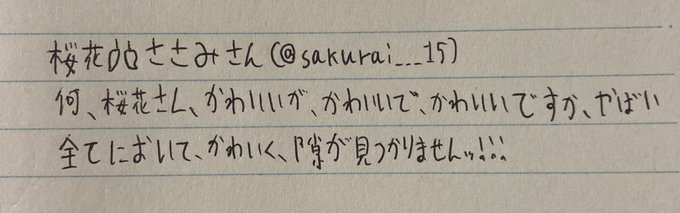 桜花凸凸ささみさん(@sakurai___15)
何、桜花さん、かわいいが、かわいいで、かわいいですか、やばい
全てにおいて、かわいく、隙が見つかりませんッ!!!